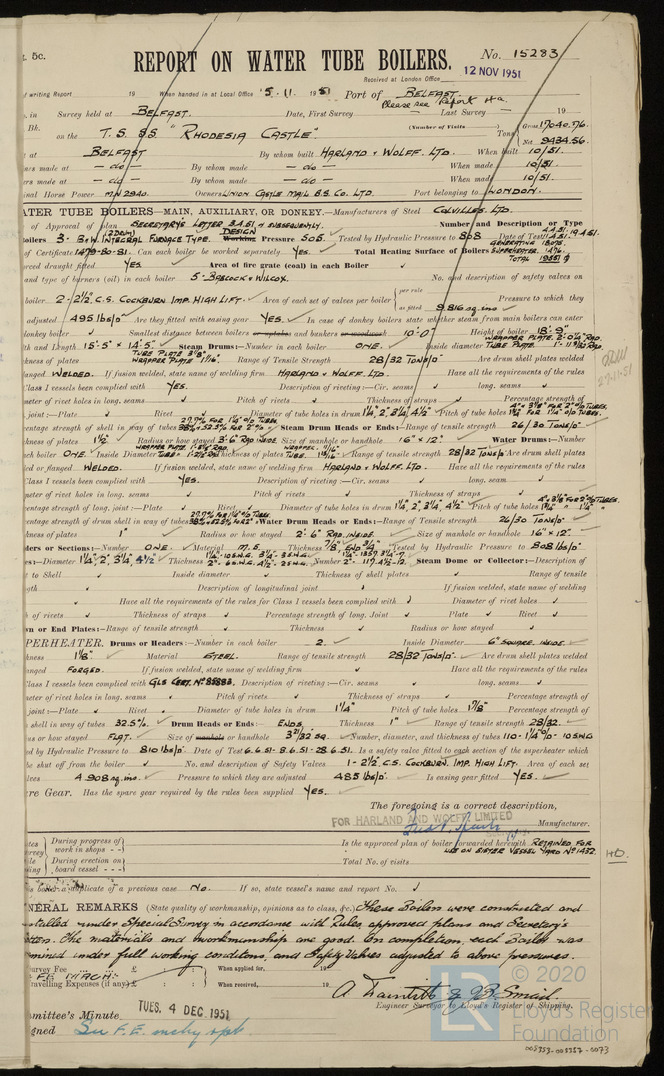 5c.
REPORT ON WATER TUBE BOILERS.
No. 15283
Received at London Office
12 NOV 1951
of writing Report 19 When handed in at Local Office 5. 11. 1951 Port of BELFAST.
Please see Report 4a.
in Survey held at BELFAST. Date, First Survey Last Survey 19
Bk. (Number of Visits)
on the T.S. S.S. "RHODESIA CASTLE". Tons Gross 17040.76.
Net 9434.56.
at BELFAST By whom built HARLAND & WOLFF. LTD. When built 10/51.
made at — do — By whom made — do — When made 10/51.
made at — do — By whom made — do — When made 10/51.
Horse Power MN 2940. Owners UNION CASTLE MAIL S.S. Co. LTD. Port belonging to LONDON.
WATER TUBE BOILERS—MAIN, AUXILIARY, OR DONKEY.—Manufacturers of Steel COLVILLES. LTD.
of Approval of plan SECRETARY'S LETTER & SUBSEQUENTLY. Number and Description or Type
Boilers 3. B&W. INTEGRAL FURNACE TYPE. (2 DRUM) DESIGN Working Pressure 505. Tested by Hydraulic Pressure to 808 Date of Test
of Certificate 1479-80-81. Can each boiler be worked separately YES. Total Heating Surface of Boilers
GENERATING 18075
SUPERHEATER. 1476.
TOTAL 19551
forced draught fitted YES. Area of fire grate (coal) in each Boiler
and type of burners (oil) in each boiler 5-BABCOCK & WILCOX. No. and description of safety valves on
boiler 2-2½" C.S. COCKBURN IMP. HIGH LIFT. Area of each set of valves per boiler per rule as fitted 9.816 sq. ins Pressure to which they
adjusted 495 lbs/□" Are they fitted with easing gear YES. In case of donkey boilers state whether steam from main boilers can enter
donkey boiler Smallest distance between boilers or uptakes and bunkers or woodwork 10'-0" Height of boiler 18'-9"
Length 15'-5" × 14'-5" Steam Drums:—Number in each boiler ONE. Inside diameter
WRAPPER PLATE. 2'-0¼" RAD.
TUBE PLATE.
TUBE PLATE 3⅜"
WRAPPER PLATE 1⅞"
Range of Tensile Strength 28/32 TONS/□" Are drum shell plates welded
flanged WELDED. If fusion welded, state name of welding firm HARLAND & WOLFF. LTD. Have all the requirements of the rules
Class I vessels been complied with YES. Description of riveting:—Cir. seams long. seams
meter of rivet holes in long. seams Pitch of rivets Thickness of straps Percentage strength of
joint:—Plate Rivet Diameter of tube holes in drum 1¼", 2", 3¼", 4½" Pitch of tube holes
percentage strength of shell in way of tubes Steam Drum Heads or Ends:—Range of tensile strength 26/30 TONS/□"
kness of plates 1½" Radius or how stayed 3'-6" RAD INSIDE Size of manhole or handhole 16" × 12" Water Drums:—Number
each boiler ONE. Inside Diameter thickness of plates Range of tensile strength 28/32 TONS/□" Are drum shell plates
ed or flanged WELDED. If fusion welded, state name of welding firm HARLAND & WOLFF. LTD. Have all the requirements of the rules
Class I vessels been complied with YES. Description of riveting:—Cir. seams long. seam
meter of rivet holes in long. seams Pitch of rivets Thickness of straps
percentage strength of long. joint:—Plate Rivet Diameter of tube holes in drum 1¼", 2", 3¼", 4½" Pitch of tube holes
percentage strength of drum shell in way of tubes Water Drum Heads or Ends:—Range of Tensile strength 26/30 TONS/□"
kness of plates 1" Radius or how stayed 2'-6" RAD. INSIDE. Size of manhole or handhole 16" × 12"
Headers or Sections:—Number ONE. Material M.S. Thickness 7/8, END 3/4" Tested by Hydraulic Pressure to 808 lbs/□"
Tubes:—Diameter 1¼", 2", 3¼", 4½" Thickness Number Steam Dome or Collector:—Description of
t to Shell Inside diameter Thickness of shell plates Range of tensile
Description of longitudinal joint If fusion welded, state name of welding
Have all the requirements of the rules for Class I vessels been complied with Diameter of rivet holes
of rivets Thickness of straps Percentage strength of long. Joint Plate Rivet
Crown or End Plates:—Range of tensile strength Thickness Radius or how stayed
SUPERHEATER. Drums or Headers:—Number in each boiler 2. Inside Diameter 6" SQUARE INSIDE.
kness 1⅛" Material STEEL. Range of tensile strength 28/32 TONS/□" Are drum shell plates welded
flanged FORGED. If fusion welded, state name of welding firm Have all the requirements of the rules
Class I vessels been complied with GLS CERT. Nº 85883. Description of riveting:—Cir. seams long. seams
meter of rivet holes in long. seams Pitch of rivets Thickness of straps Percentage strength of
joint:—Plate Rivet Diameter of tube holes in drum 1¼" Pitch of tube holes 1⅞" Percentage strength of
shell in way of tubes 32.5% Drum Heads or Ends:— ENDS. Thickness 1" Range of tensile strength 28/32.
us or how stayed FLAT. Size of manhole or handhole 3²⁹⁄₃₂ SQ. Number, diameter, and thickness of tubes 110-1¼" O/D 10SWG
ed by Hydraulic Pressure to 810 lbs/□" Date of Test 6.6.51-8.6.51-28.6.51. Is a safety valve fitted to each section of the superheater which
be shut off from the boiler No. and description of Safety Valves 1-2½" C.S. COCKBURN. IMP. HIGH LIFT. Area of each set
valves 4.908 sq. ins. Pressure to which they are adjusted 485 lbs/□" Is easing gear fitted YES.
Spare Gear. Has the spare gear required by the rules been supplied YES.
The foregoing is a correct description,
FOR HARLAND AND WOLFF, LIMITED
Manufacturer.
During progress of work in shops - -
During erection on board vessel - - -
Is the approved plan of boiler forwarded herewith RETAINED FOR
USE ON SISTER VESSEL YARD Nº 1432.
Total No. of visits
Is this boiler a duplicate of a previous case No. If so, state vessel's name and report No.
GENERAL REMARKS (State quality of workmanship, opinions as to class, &c.) These Boilers were constructed and
installed under Special Survey in accordance with Rules, approved plans and Secretary's
letters. The materials and workmanship are good. On completion, each Boiler was
examined under full working conditions, and Safety Valves adjusted to above pressures.
Survey Fee £ : : When applied for,
SEE F.E. MACHY
Travelling Expenses (if any) £ : : When received, 19
A. Tainitts & J.B. Smail.
Engineer Surveyor to Lloyd's Register of Shipping.
Committee's Minute TUES. 4 DEC 1951
Assigned See F.E. mchy rpt.
© 2020
Lloyd's Register
Foundation
005353-005357-0073